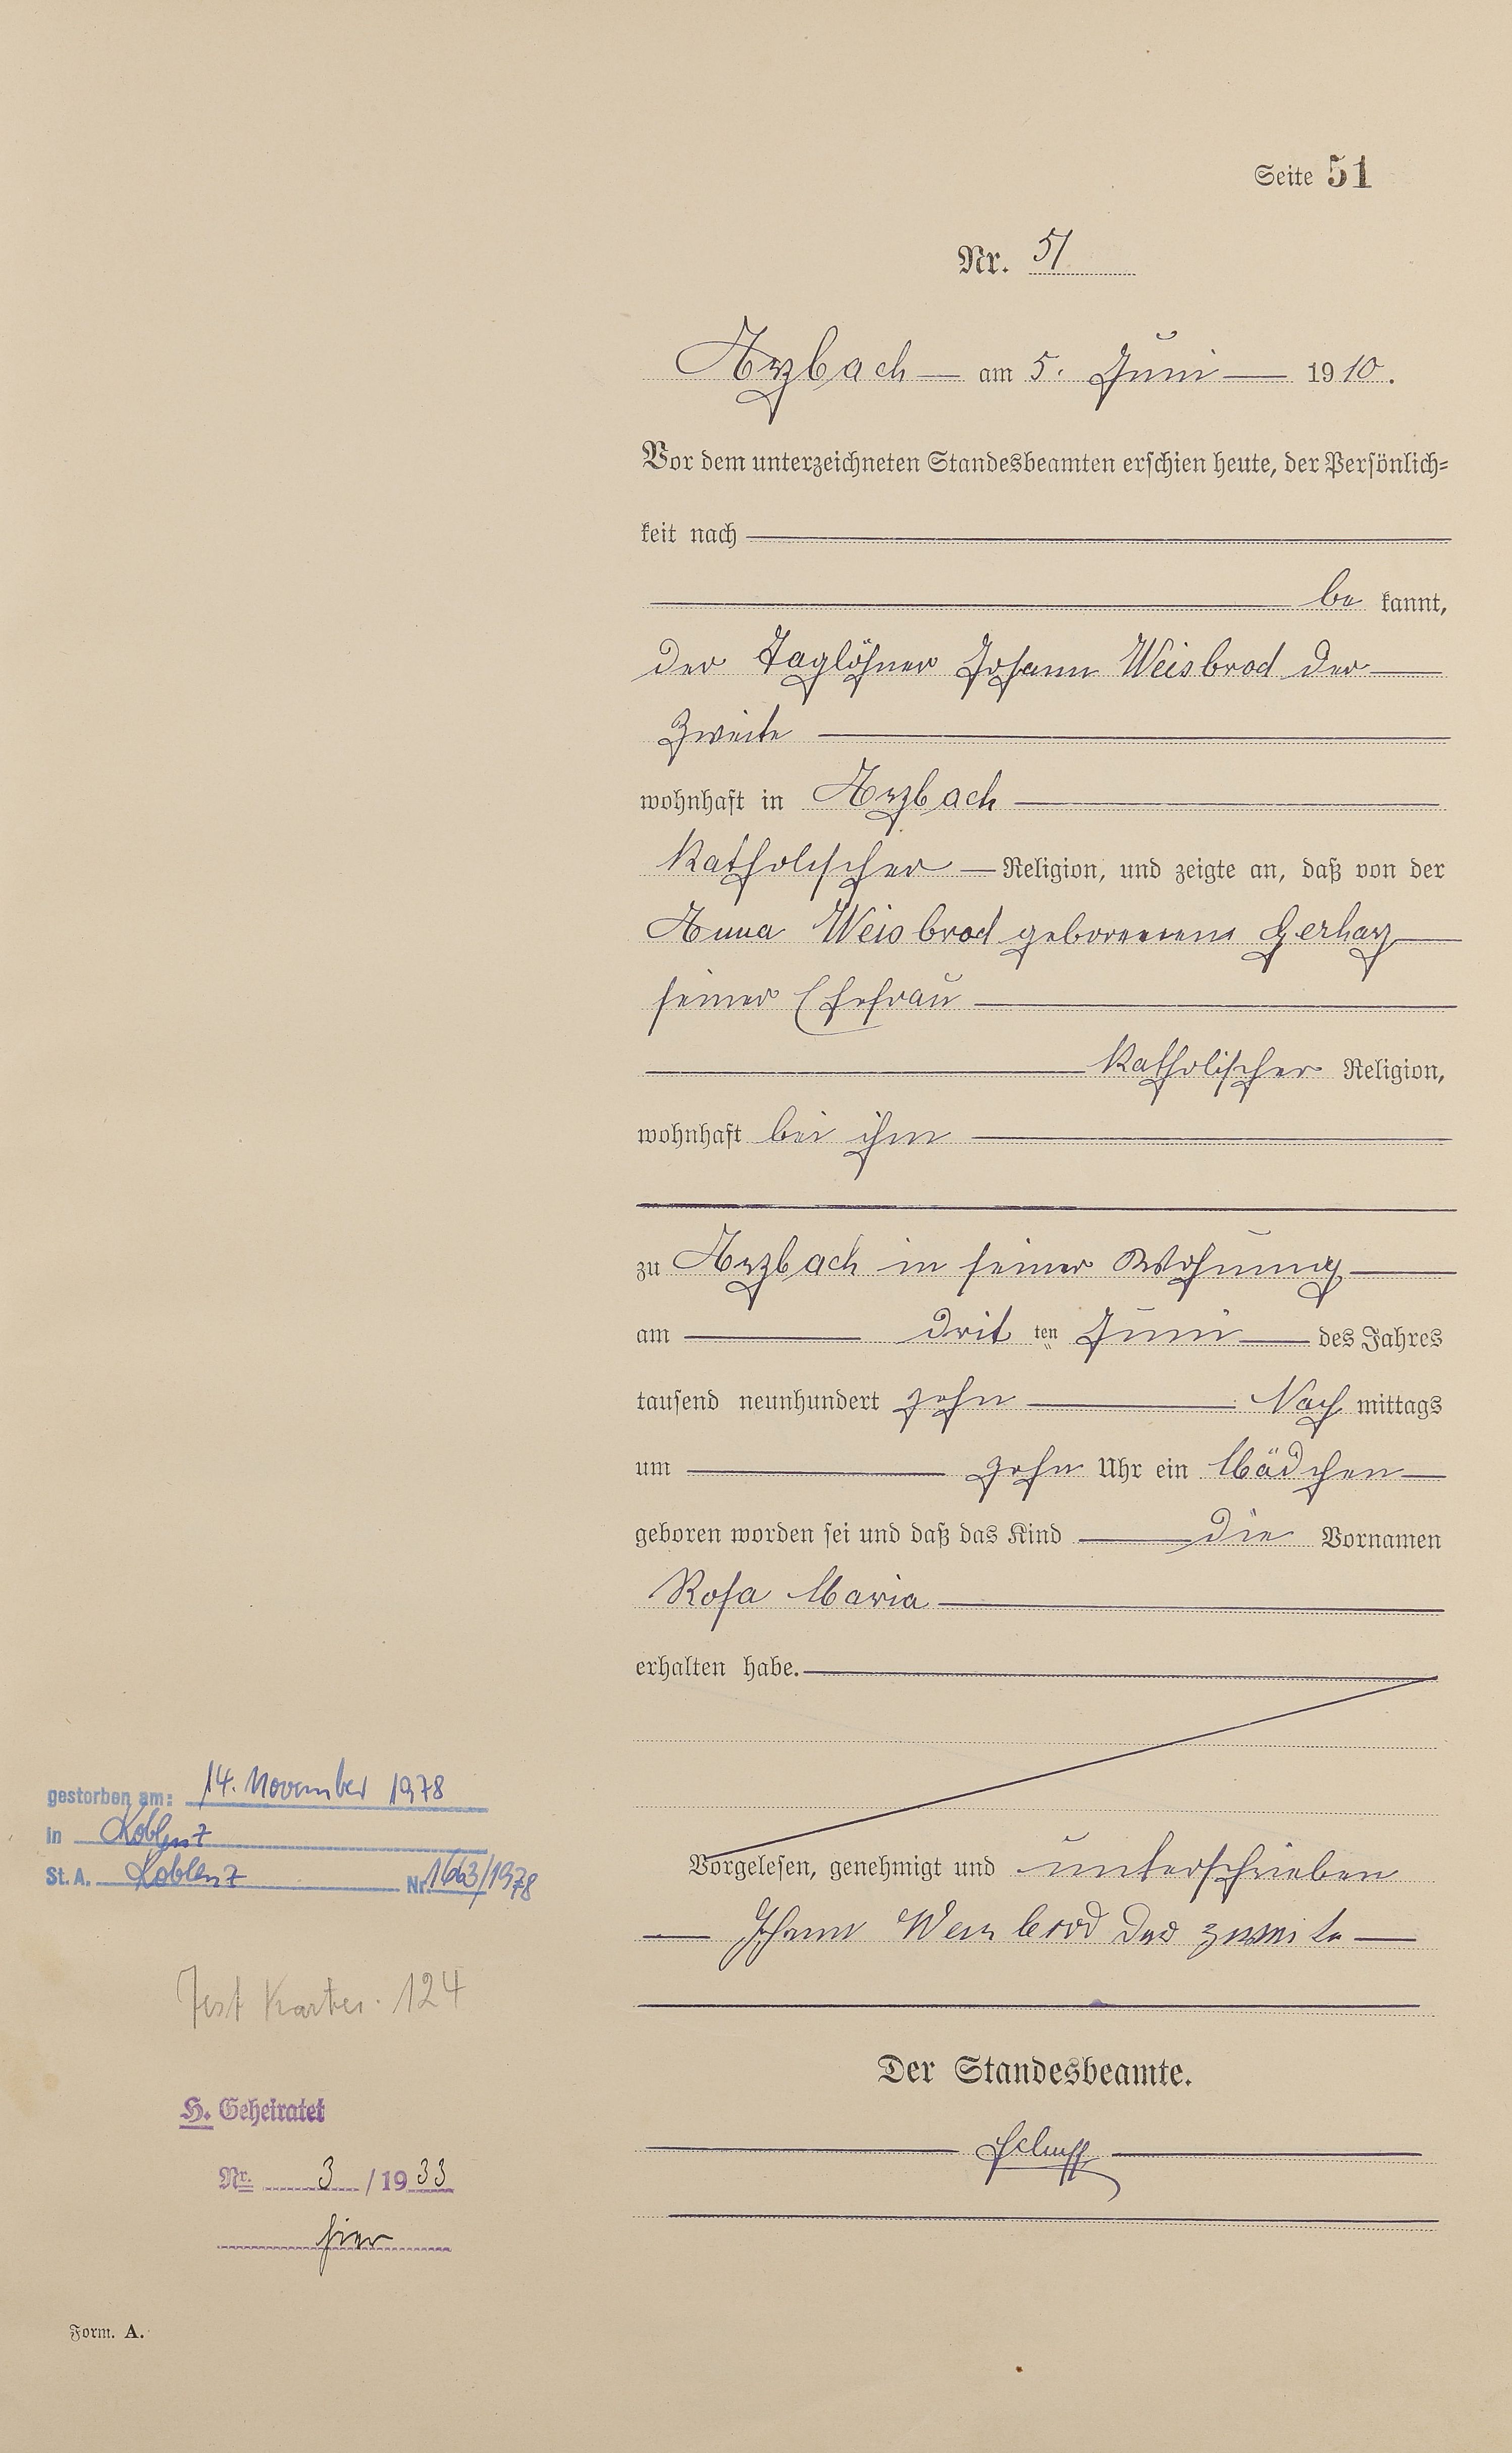 Seite 51
Nr. 51
Arzbach am 5. Juni 1910.
Vor dem unterzeichneten Standesbeamten erschien heute, der Persönlich=
keit nach
be kannt,
der Taglöhner Johann Weisbrod der
Zweite
wohnhaft in Arzbach
katholischer Religion, und zeigte an, daß von der
Anna Weisbrod geborenen Gerharz
seiner Ehefrau
katholischer Religion,
wohnhaft bei ihm
zu Arzbach in seiner Wohnung
am drit ten Juni des Jahres
tausend neunhundert zehn Nach mittags
um zehn Uhr ein Mädchen
geboren worden sei und daß das Kind die Vornamen
Rosa Maria
erhalten habe.
Vorgelesen, genehmigt und unterschrieben
Johann Weisbrod der zweite
Der Standesbeamte.
gestorben am: 14. November 1978
in Koblenz
St. A. Koblenz Nr. 1663/1978
124
H. Geheiratet
Nr. 3 / 1933
hier
Form. A.